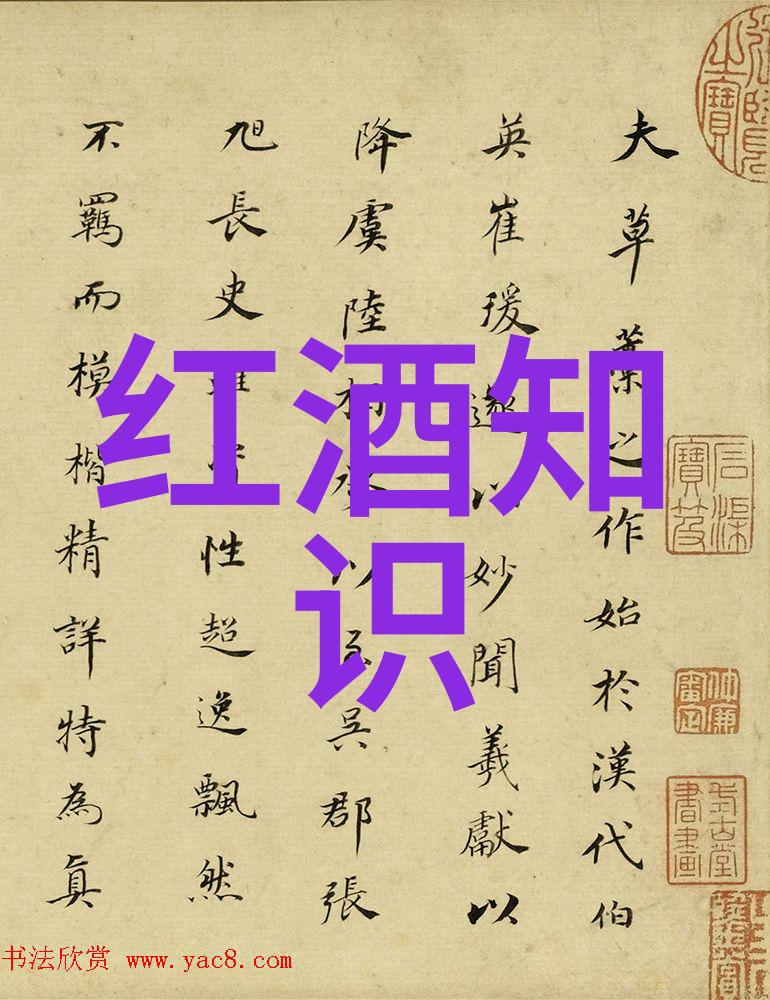 红酒知
识
夫草藁之作始於漢代伯
英崔瑗遂以妙聞羲獻以
降虞陸相承以至吳郡張
旭長史雖性超逸飄然
不羈而模楷精詳特為真
石渠寶笈
书法欣赏 www.yac8.com